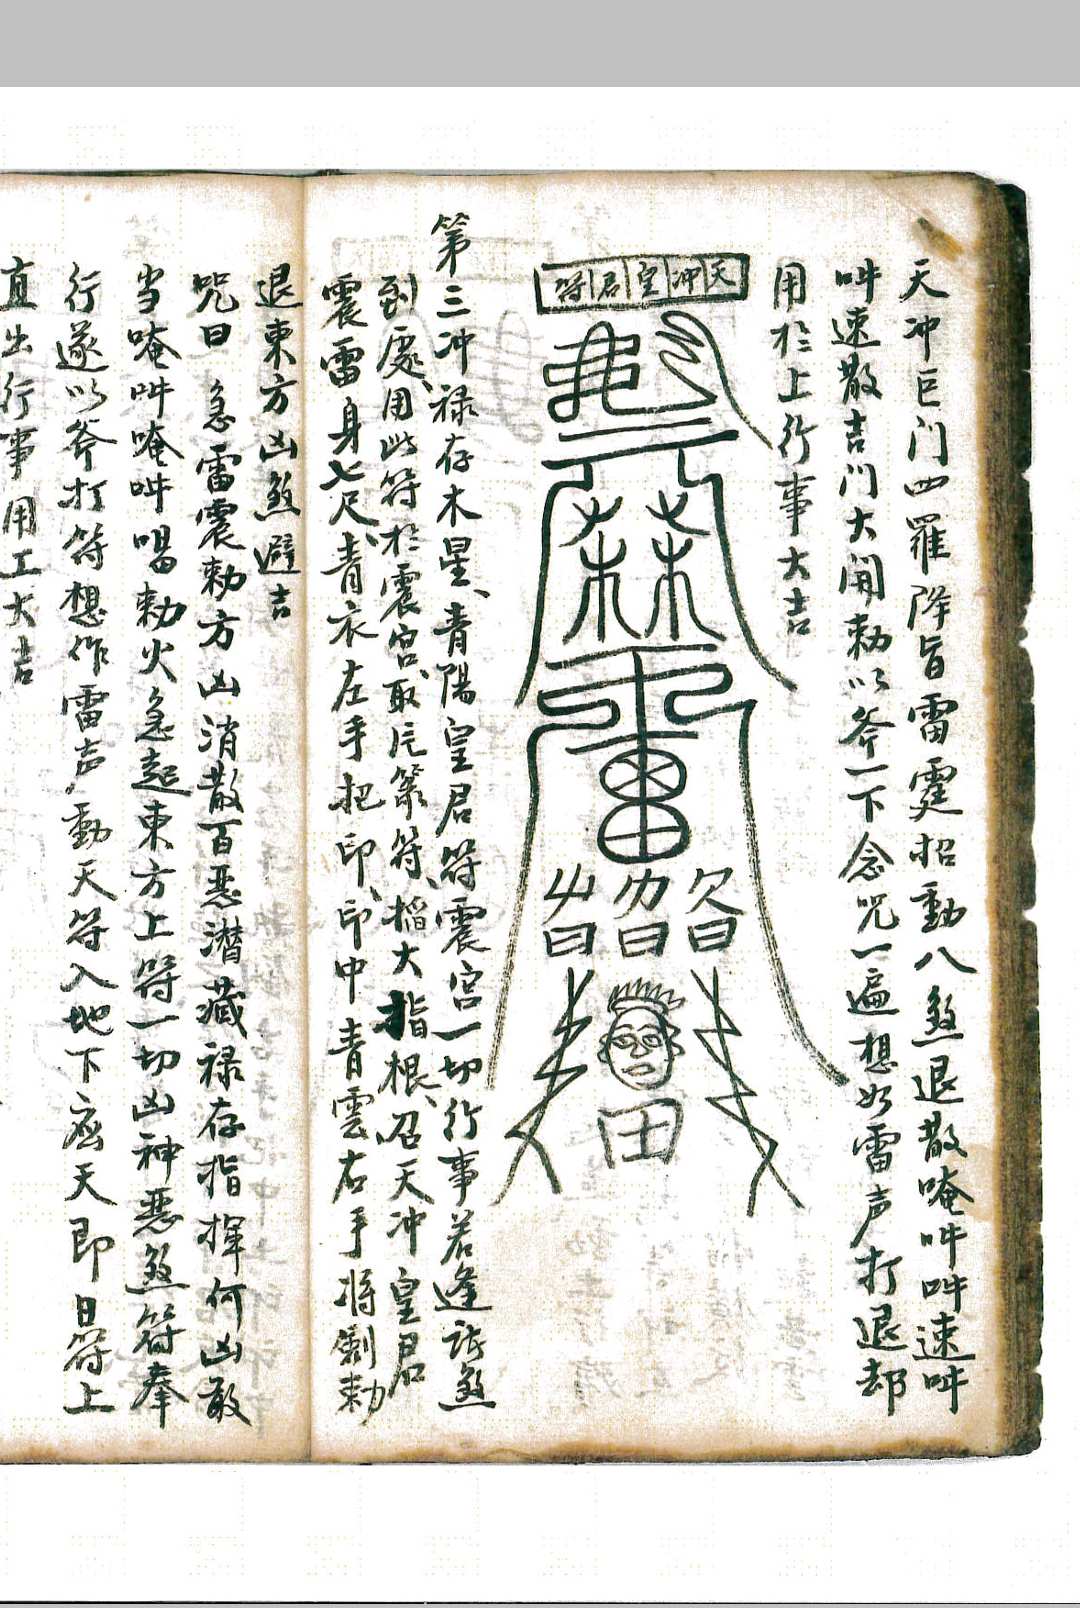 天冲巨门四羅降旨雷霆招動八煞退散唵吽吽速吽
吽速散吉门大開勅以斧一下念咒一遍想如雷声打退却
用於上行事大吉
天冲皇君符
第三冲禄存木星、青陽皇君符震宮一切行事若逢諸煞
到處、用此符於震宫、取瓦篆符、掐大指根、召天冲皇君
震雷身七尺、青衣左手把印、印中青雲右手将劍勅
退東方凶煞避吉
咒曰 急雷震勅方凶消散百惡潜藏禄存指揮何凶敢
当唵吽唵吽唱勅火急起東方上符一切凶神惡煞符奉
行遂以斧打符想作雷声動天符入地下應天即日符上
直出行事用工大吉